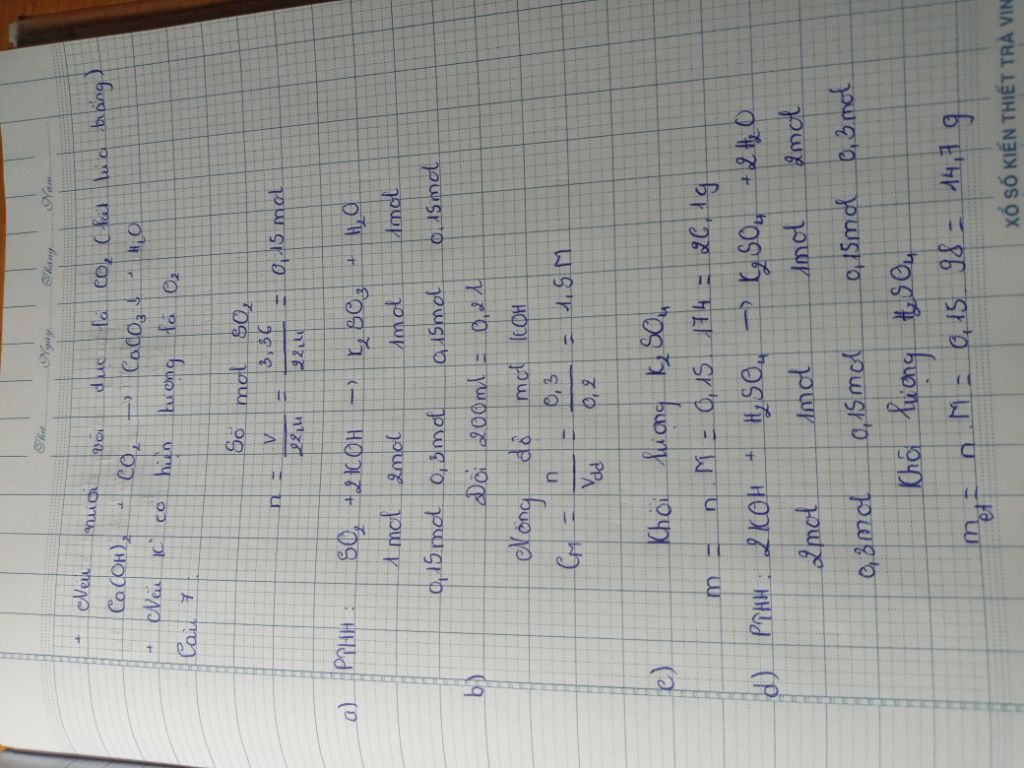 Thứ Ngày Tháng Năm
+ Nếu nước vôi đục là CO2 (hát hiđo bằng)
Ca(OH)2 + CO2 → CaCO3↓ + H2O
+ Nếu K có hiện tượng là O2
Câu 7.
Số mol SO2
n = V/22,4 = 3,36/22,4 = 0,15 mol
a) PTHH: SO2 + 2KOH → K2SO3 + H2O
1 mol 2mol 1mol 1mol
0,15mol 0,3mol 0,15mol 0,15mol
b) Đổi 200ml = 0,2l
Nồng độ mol KOH
CM = n/Vdd = 0,3/0,2 = 1,5 M
c) Khối lượng K2SO4
m = n . M = 0,15 . 174 = 26,1g
d) PTHH: 2KOH + H2SO4 → K2SO4 + 2H2O
2mol 1mol 1mol 2mol
0,3mol 0,15mol 0,15mol 0,3mol
Khối lượng H2SO4
mct = n . M = 0,15 . 98 = 14,7 g
XỔ SỐ KIẾN THIẾT TRÀ VIN